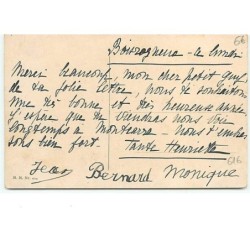 le
Merci beaucoup, mon cher petit Guy
de ta jolie lettre, nous te souhaitons
une très bonne et très heureuse année
J'espère que tu viendras nous voir
longtemps à nous t'embras
sons bien fort.
Tante Henriette
Jean Bernard Monique